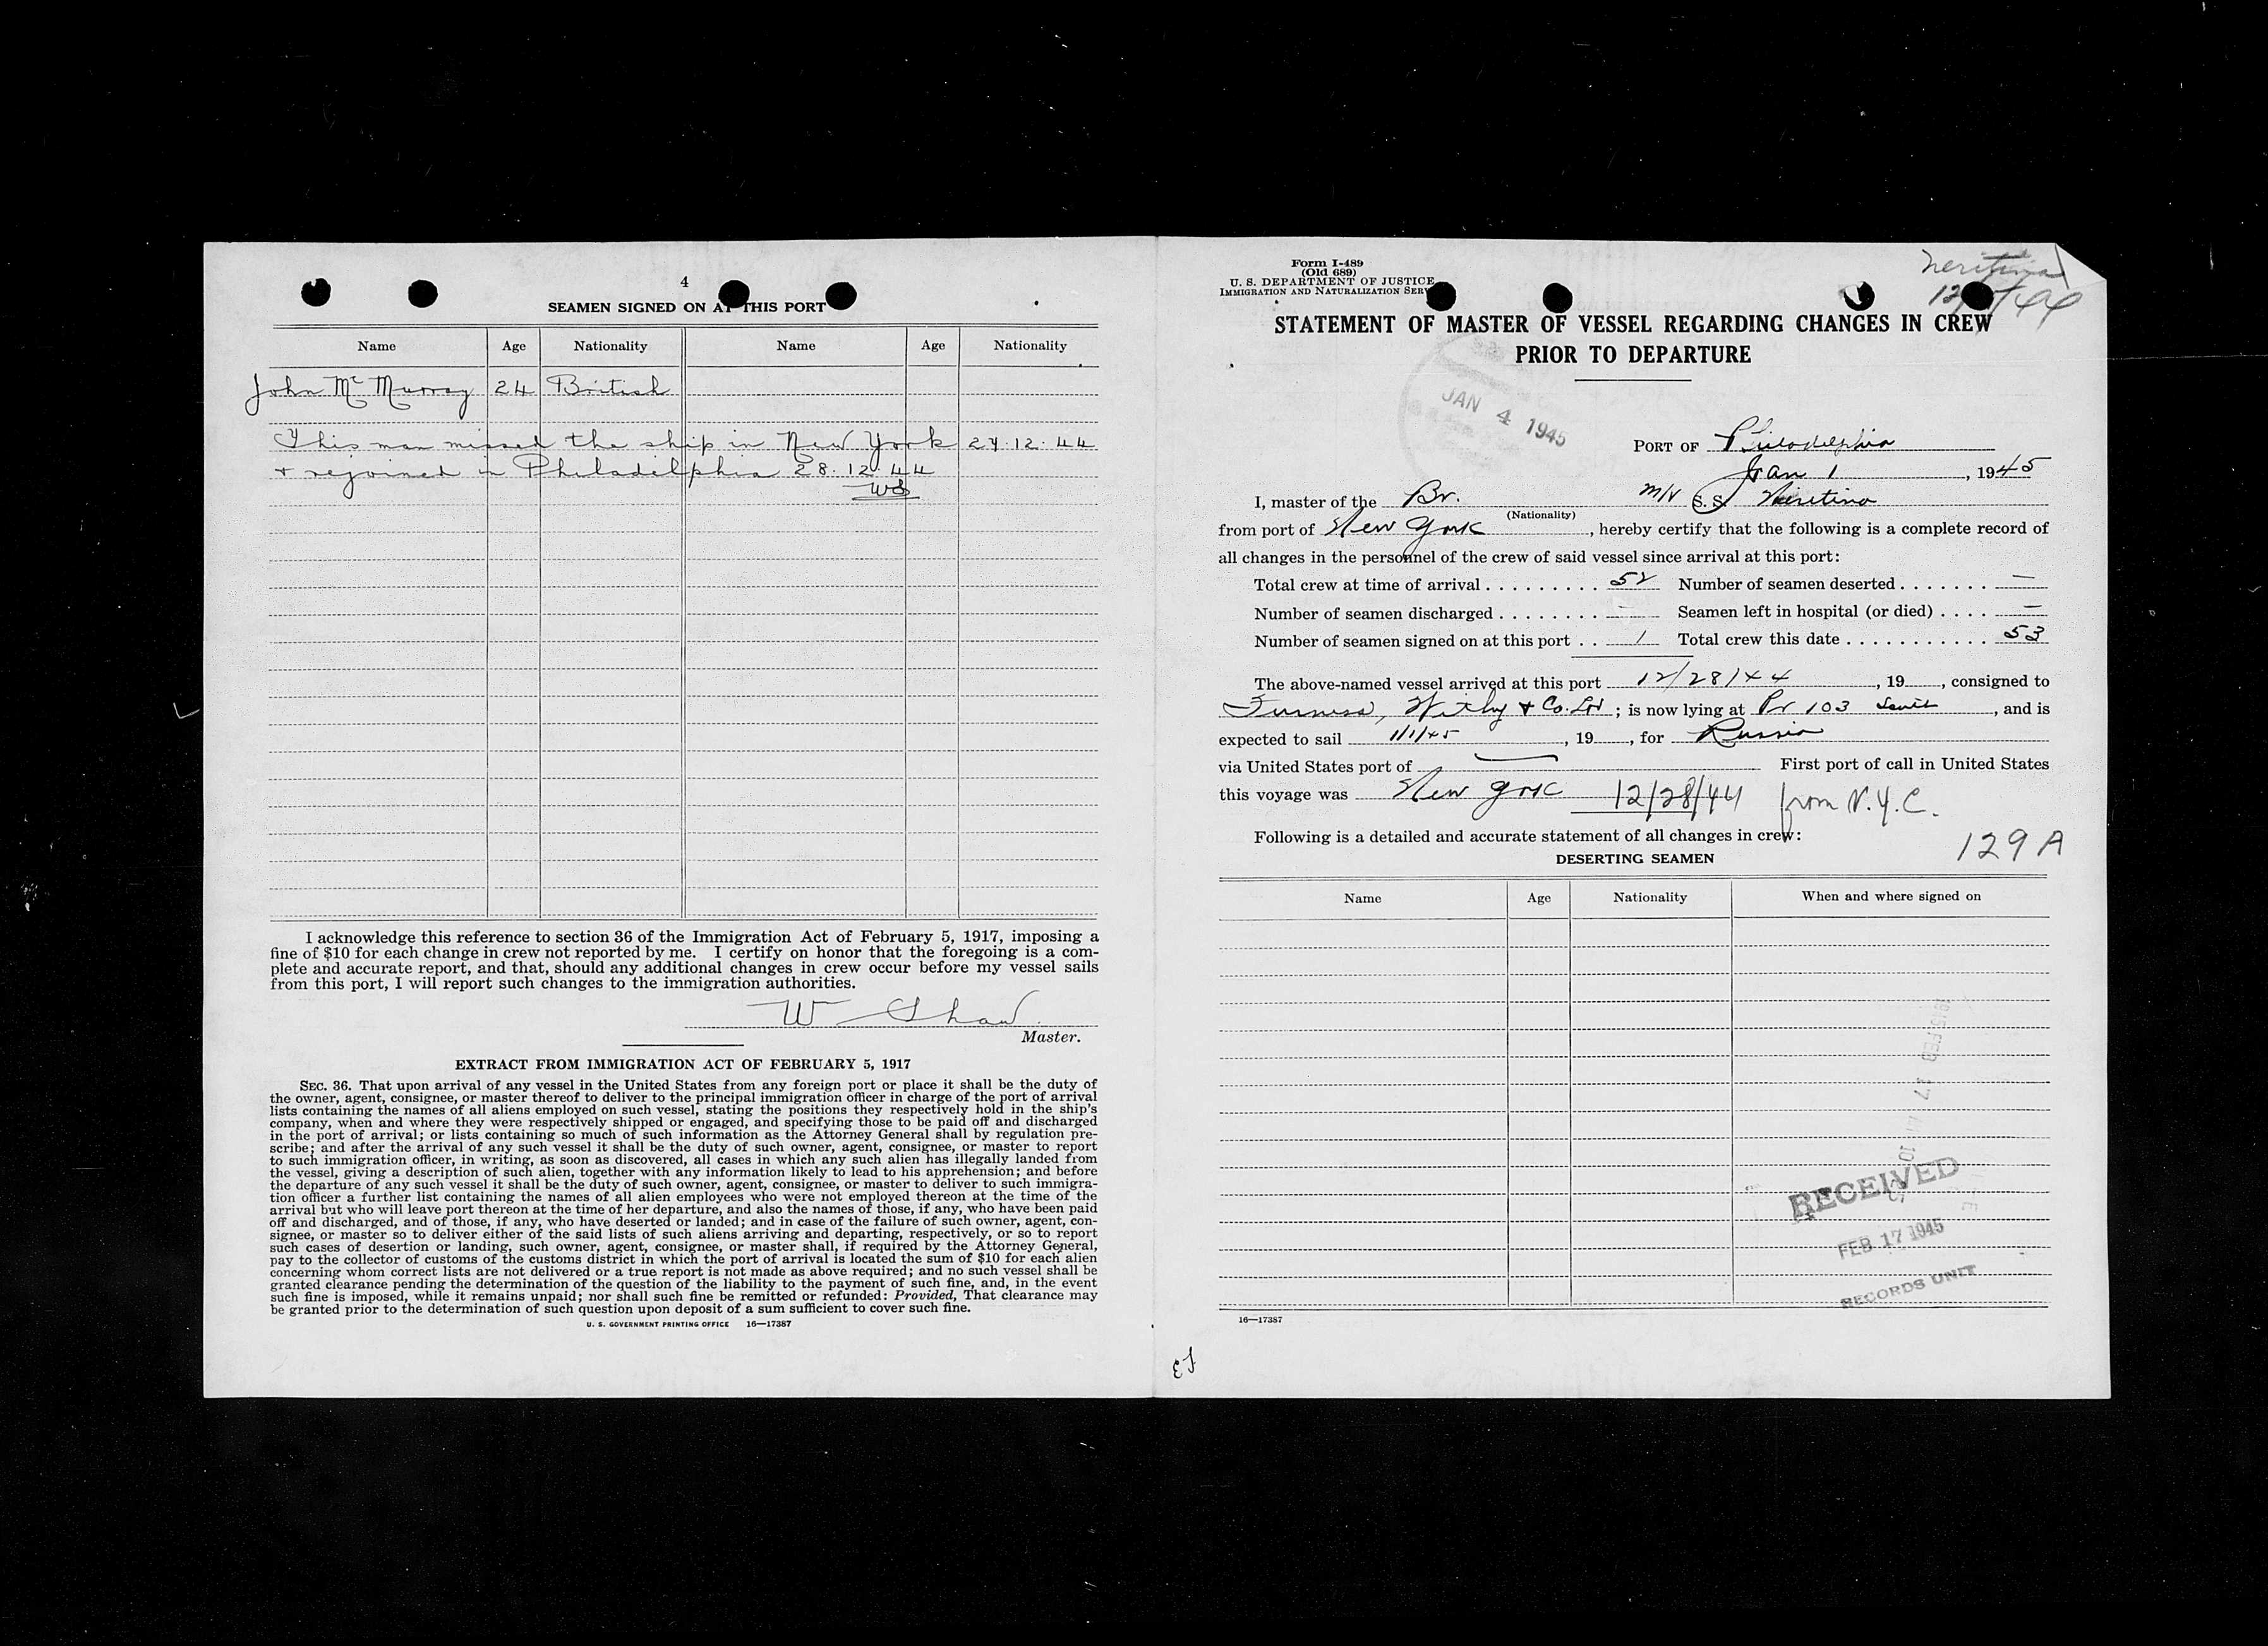 4
SEAMEN SIGNED ON AT THIS PORT
Name Age Nationality Name Age Nationality
John McMurray 24 British
This man missed the ship in New York 27.12.44
+ rejoined in Philadelphia 28.12.44
WS
I acknowledge this reference to section 36 of the Immigration Act of February 5, 1917, imposing a
fine of $10 for each change in crew not reported by me. I certify on honor that the foregoing is a com-
plete and accurate report, and that, should any additional changes in crew occur before my vessel sails
from this port, I will report such changes to the immigration authorities.
W Shaw
Master.
EXTRACT FROM IMMIGRATION ACT OF FEBRUARY 5, 1917
SEC. 36. That upon arrival of any vessel in the United States from any foreign port or place it shall be the duty of
the owner, agent, consignee, or master thereof to deliver to the principal immigration officer in charge of the port of arrival
lists containing the names of all aliens employed on such vessel, stating the positions they respectively hold in the ship's
company, when and where they were respectively shipped or engaged, and specifying those to be paid off and discharged
in the port of arrival; or lists containing so much of such information as the Attorney General shall by regulation pre-
scribe; and after the arrival of any such vessel it shall be the duty of such owner, agent, consignee, or master to report
to such immigration officer, in writing, as soon as discovered, all cases in which any such alien has illegally landed from
the vessel, giving a description of such alien, together with any information likely to lead to his apprehension; and before
the departure of any such vessel it shall be the duty of such owner, agent, consignee, or master to deliver to such immigra-
tion officer a further list containing the names of all alien employees who were not employed thereon at the time of the
arrival but who will leave port thereon at the time of her departure, and also the names of those, if any, who have been paid
off and discharged, and of those, if any, who have deserted or landed; and in case of the failure of such owner, agent, con-
signee, or master so to deliver either of the said lists of such aliens arriving and departing, respectively, or so to report
such cases of desertion or landing, such owner, agent, consignee, or master shall, if required by the Attorney General,
pay to the collector of customs of the customs district in which the port of arrival is located the sum of $10 for each alien
concerning whom correct lists are not delivered or a true report is not made as above required; and no such vessel shall be
granted clearance pending the determination of the question of the liability to the payment of such fine, and, in the event
such fine is imposed, while it remains unpaid; nor shall such fine be remitted or refunded: Provided, That clearance may
be granted prior to the determination of such question upon deposit of a sum sufficient to cover such fine.
U. S. GOVERNMENT PRINTING OFFICE 16—17387
Form I-489
(Old 689)
U. S. DEPARTMENT OF JUSTICE
IMMIGRATION AND NATURALIZATION SERV
Neritina
STATEMENT OF MASTER OF VESSEL REGARDING CHANGES IN CREW
PRIOR TO DEPARTURE
JAN 4 1945
PORT OF Philadelphia
Jan 1, 1945
I, master of the Br. M/V S. S. Neritina
(Nationality)
from port of New York, hereby certify that the following is a complete record of
all changes in the personnel of the crew of said vessel since arrival at this port:
Total crew at time of arrival . . . . . . . . . 52 Number of seamen deserted . . . . . . . —
Number of seamen discharged . . . . . . . . — Seamen left in hospital (or died) . . . . —
Number of seamen signed on at this port . . 1 Total crew this date . . . . . . . . . . . . 53
The above-named vessel arrived at this port 12/28/44, 19, consigned to
Furness, Withy + Co. Ltd; is now lying at Pr 103 South, and is
expected to sail 1/1/45, 19, for Russia
via United States port of — First port of call in United States
this voyage was New York 12/28/44 from N.Y.C.
Following is a detailed and accurate statement of all changes in crew:
129 A
DESERTING SEAMEN
Name Age Nationality When and where signed on
1945 FEB 17
RECEIVED
FEB 17 1945
RECORDS UNIT
16—17387